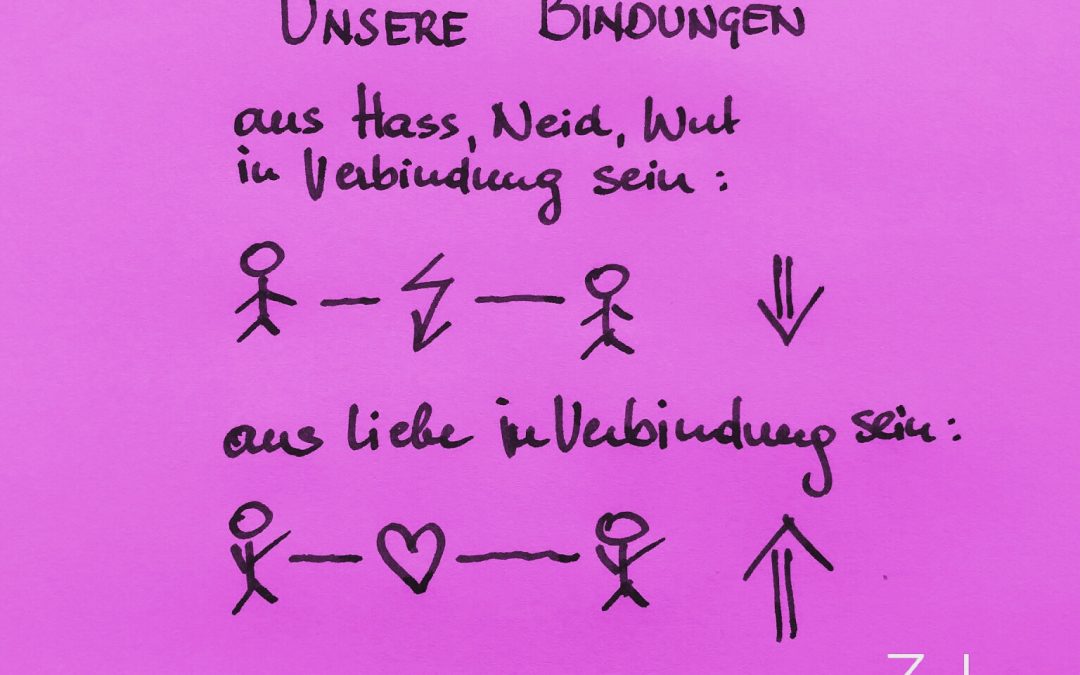 UNSERE BINDUNGEN
aus Hass, Neid, Wut
in Verbindung sein:
aus Liebe in Verbindung sein: